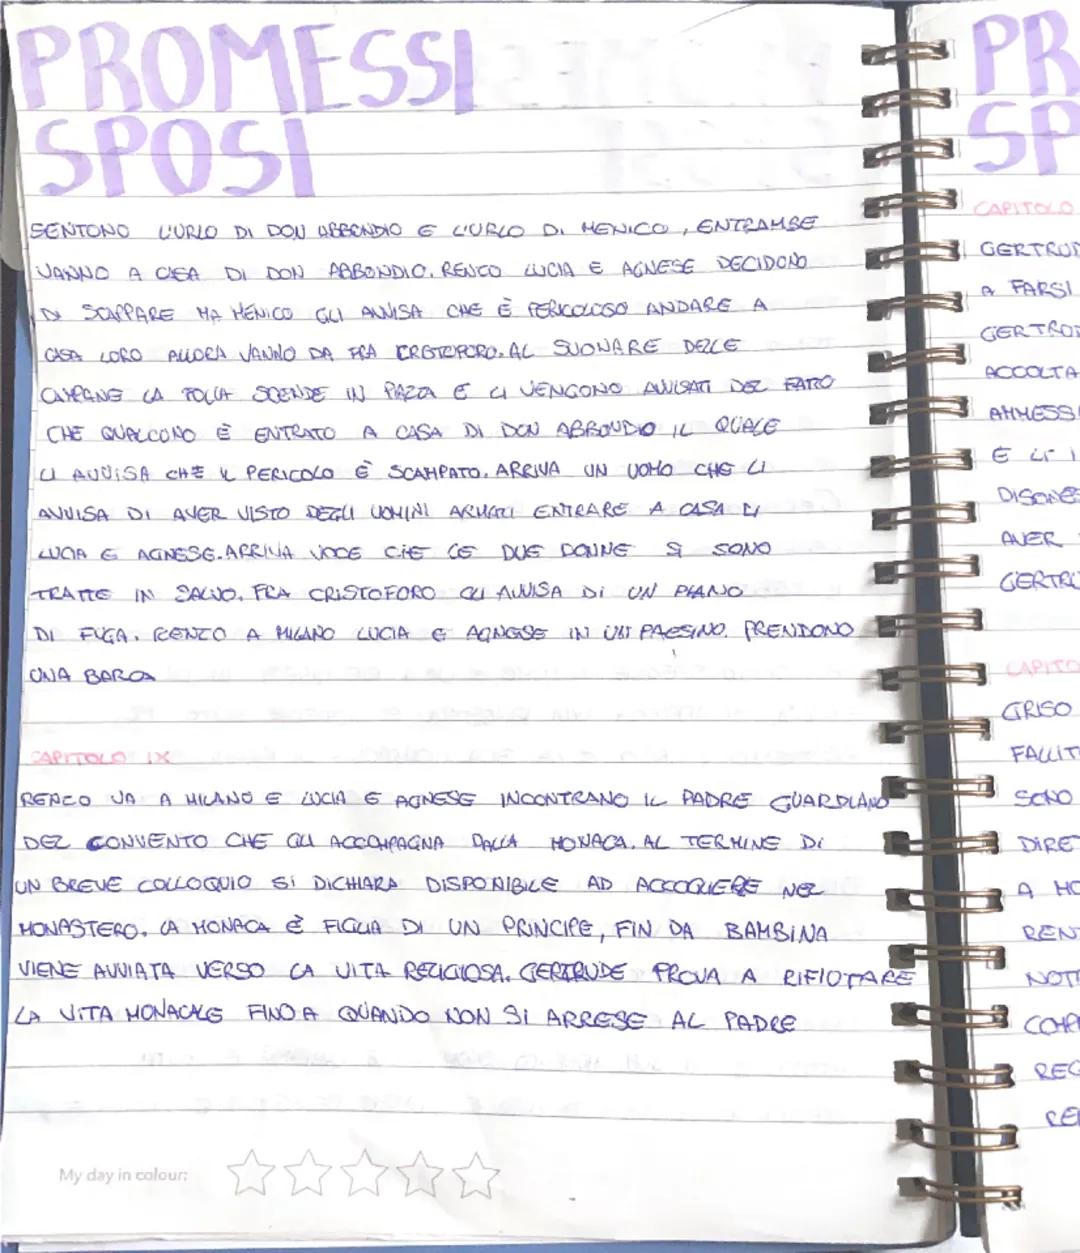 PROMESSI
SPOSI
SENTONO L'URLO DI DON ABBONDIO E L'URLO DI MENICO, ENTRAMBE
VANNO A CASA DI DON ABBONDIO. RENZO LUCIA E AGNESE DECIDONO
DI SCAPPARE MA MENICO GLI AVVISA CHE È PERICOLOSO ANDARE A
CASA LORO ALLORA VANNO DA FRA CRISTOFORO. AL SUONARE DELLE
CAMPANE LA FOLLA SCENDE IN PIAZZA E LI VENGONO AVVISATI DEL FATTO
CHE QUALCONO È ENTRATO A CASA DI DON ABBONDIO IL QUALE
LI AVVISA CHE IL PERICOLO È SCAMPATO. ARRIVA UN UOMO CHE LI
AVVISA DI AVER VISTO DEGLI UOMINI ARMATI ENTRARE A CASA DI
LUCIA E AGNESE. ARRIVA VOCE CHE LE DUE DONNE SI SONO
TRATTE IN SALVO. FRA CRISTOFORO GLI AVVISA DI UN PIANO
DI FUGA. RENZO A MILANO LUCIA E AGNESE IN UN PAESINO. PRENDONO
UNA BARCA
CAPITOLO IX
RENZO VA A MILANO E LUCIA E AGNESE INCONTRANO IL PADRE GUARDIANO
DEL CONVENTO CHE GLI ACCOMPAGNA DALLA MONACA. AL TERMINE DI
UN BREVE COLLOQUIO SI DICHIARA DISPONIBILE AD ACCOGLIERE NEL
MONASTERO. LA MONACA È FIGLIA DI UN PRINCIPE, FIN DA BAMBINA
VIENE AVVIATA VERSO LA VITA RELIGIOSA. GERTRUDE PROVA A RIFIUTARE
LA VITA MONACALE FINO A QUANDO NON SI ARRESE AL PADRE
My day in colour:
PR
SP
CAPITOLO
GERTRUD
A FARSI
GERTRUD
ACCOLTA
AMMESSI
E LI
DISONES
AVER
GERTRU
CAPITO
GRISO
FALLIT
SONO
DIRET
A MO
REN
NOTT
COMP
REG
REN